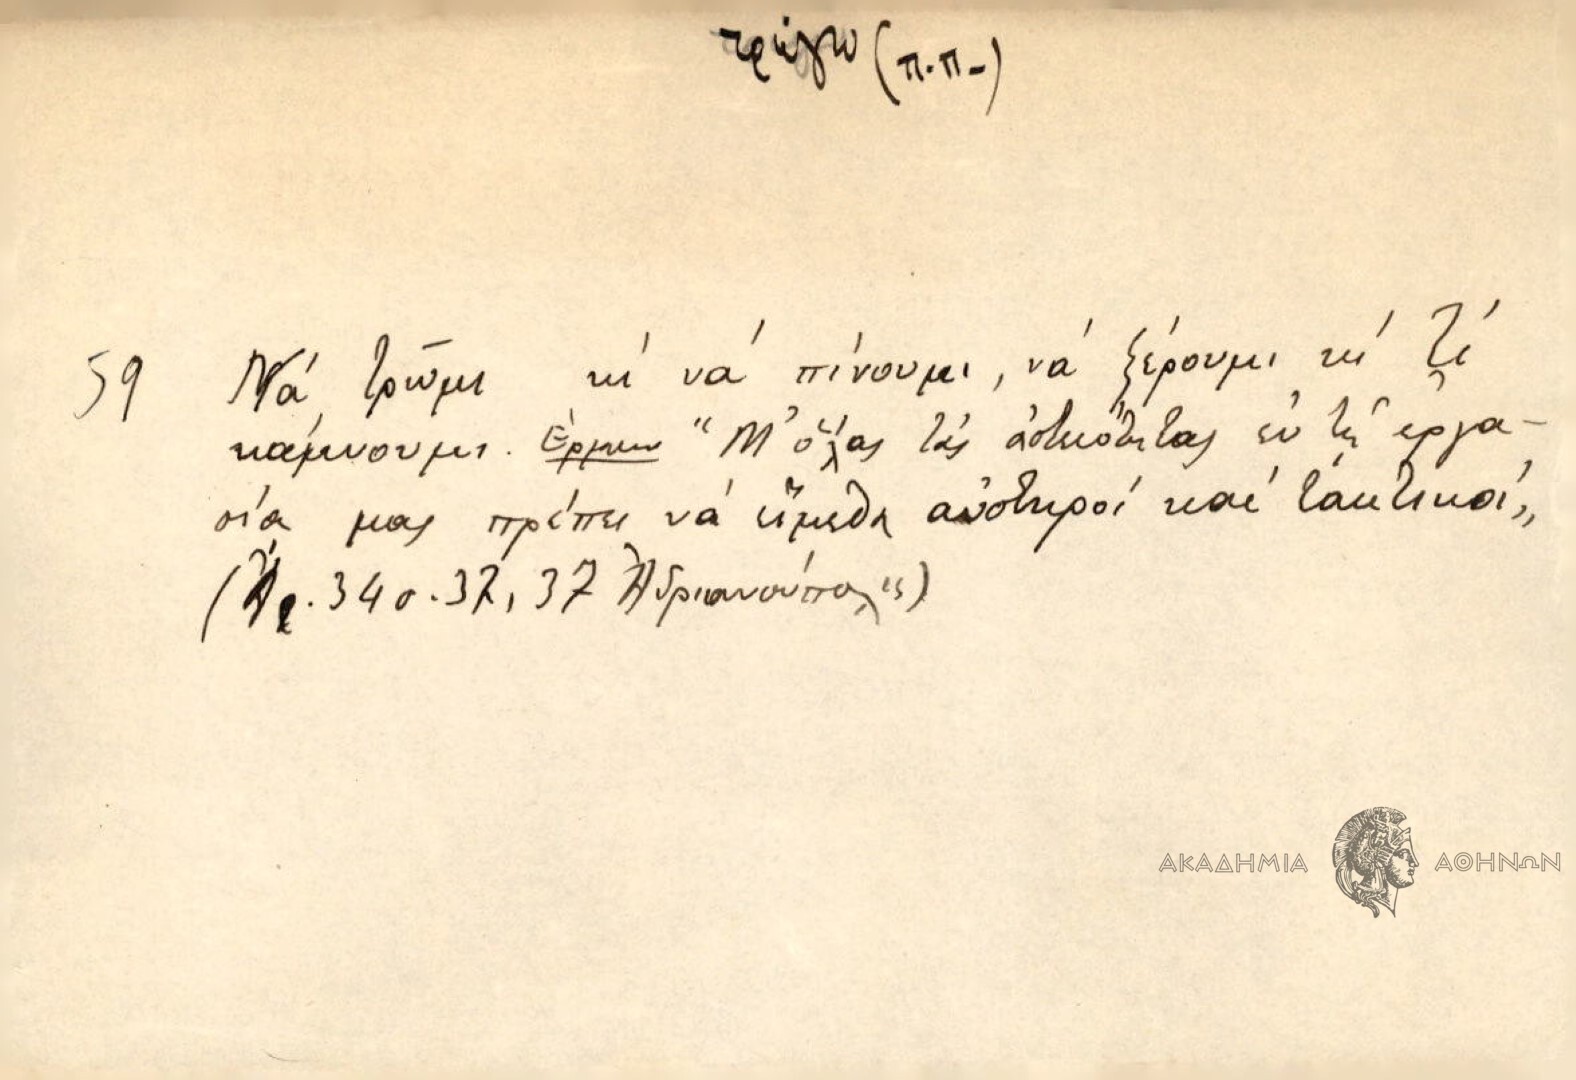 τρώγω (π.π-)
59 Νά τρῶμι κί νά πίνουμι, νά ξέρουμι κί τί
κάμνουμι. Ἑρμην "Μ' ὅλας τάς ἀστειότητας ἐν τῇ ἐργα-
σία μας πρέπει νά εἴμεθα αὐστηροί καί τακτικοί,,
(Ἀρ. 34 σ. 37, 37 Ἀδριανούπολις)
ΑΚΑΔΗΜΙΑ ΑΘΗΝΩΝ